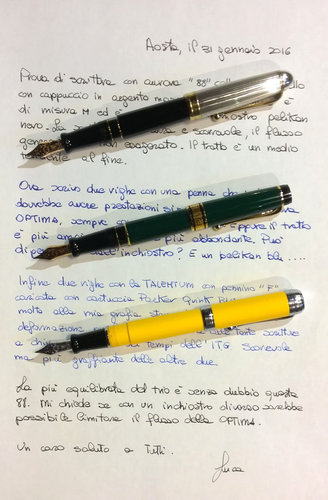 Aosta, il 31 gennaio 2016
Prova di scrittura con aurora "88"
con cappuccio in argento
di misura M ed è pelikan
nero. La e scorrevole, il flusso
esagerato. Il tratto è un medio
al fine.
Ora scrivo due righe con una penna che
dovrebbe avere prestazioni
OPTIMA, sempre il tratto
è più più abbondante. Può
di inchiostro? È un pelikan blu ....
Infine due righe con la TALENTUM con pennino "F"
caricata con cartuccia Parker Quink
molto alla mia grafia
deformazione scritture
a tempi dell' ITG. Scorrevole
ma più graffiante delle altre due.
La più equilibrata del trio è senza dubbio questa
88. Mi chiedo se con un inchiostro diverso sarebbe
possibile limitare il flusso della OPTIMA.
Un caro saluto a Tutti.
Luca